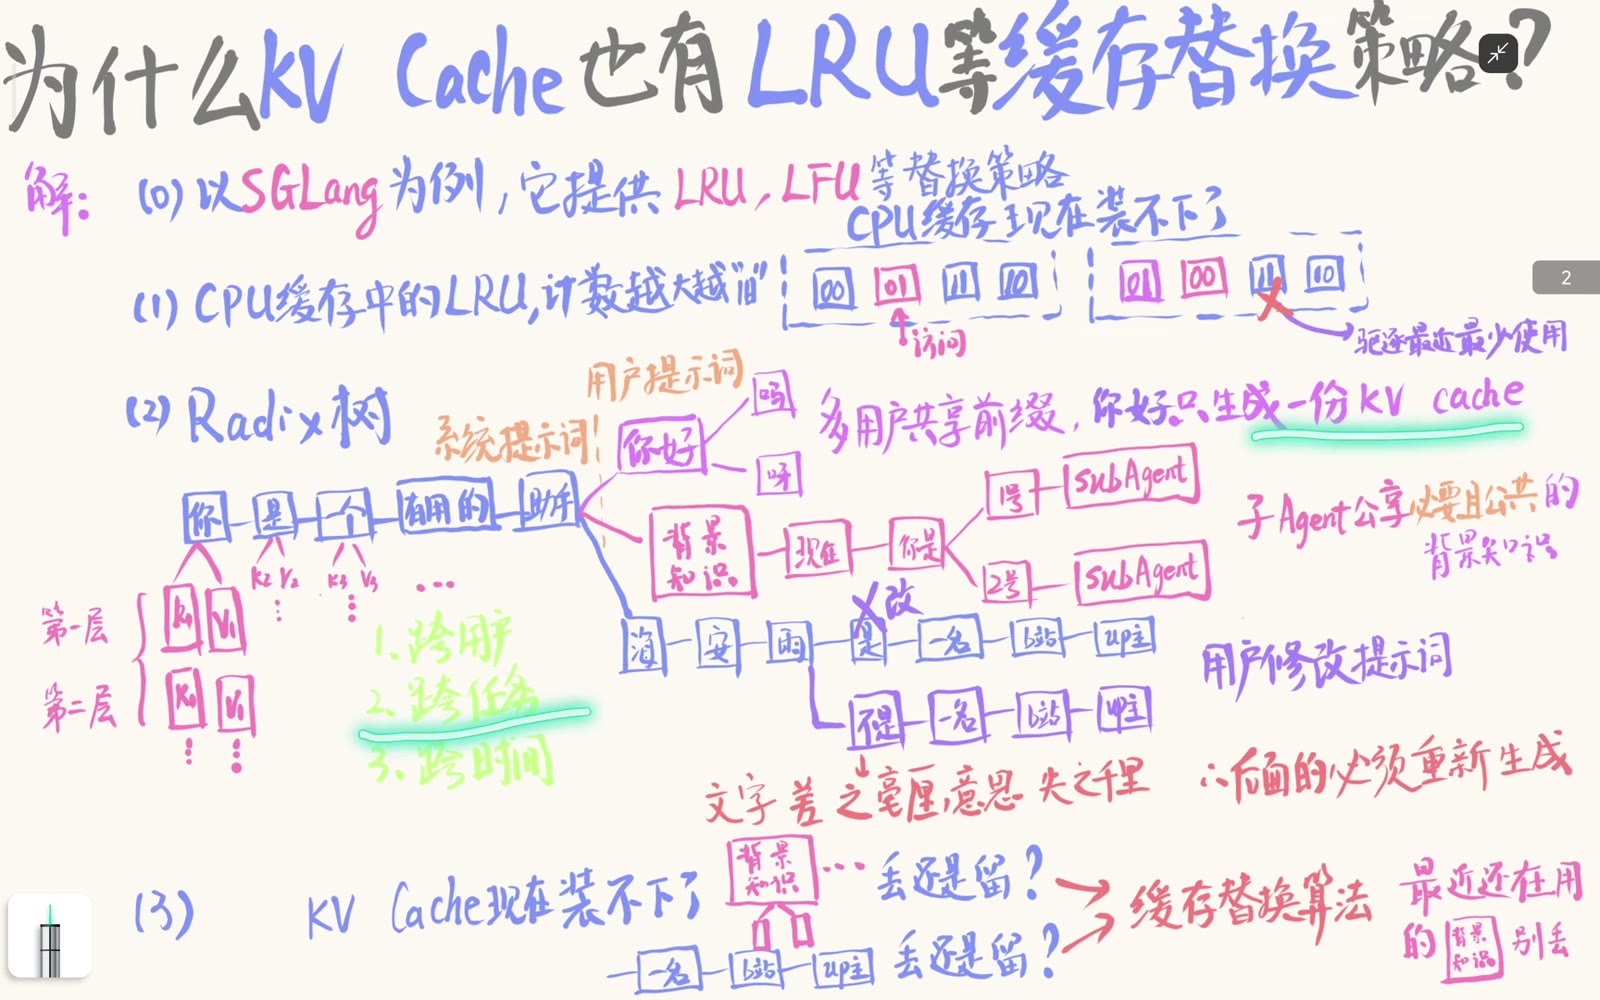 为什么KV Cache也有LRU等缓存替换策略?
解: (0) 以SGLang为例,它提供 LRU, LFU等替换策略
CPU缓存现在装不下了
(1) CPU缓存中的LRU,计数越大越"旧"
00 01 11 10
01 00 11 10
访问
驱逐最近最少使用
2
(2) Radix树
系统提示词
用户提示词
你好 吗
呀
多用户共享前缀,你好只生成一份KV cache
你 是 一个 有用的 助手
背景知识 现在 你是
1号 subAgent
2号 subAgent
子Agent公享必要且公共的
背景知识
K2 V2 K3 V3 ...
第一层 K1 V1
第二层 K1 V1
1.跨用户
2.跨任务
3.跨时间
X改
安 雨 是 一名 b站 up主
不是 一名 b站 up主
用户修改提示词
文字差之毫厘,意思失之千里
∴后面的必须重新生成
(3) KV Cache现在装不下了
背景知识 ... 丢还是留?
一名 b站 up主 丢还是留?
缓存替换算法
最近还在用
的 背景知识 别丢